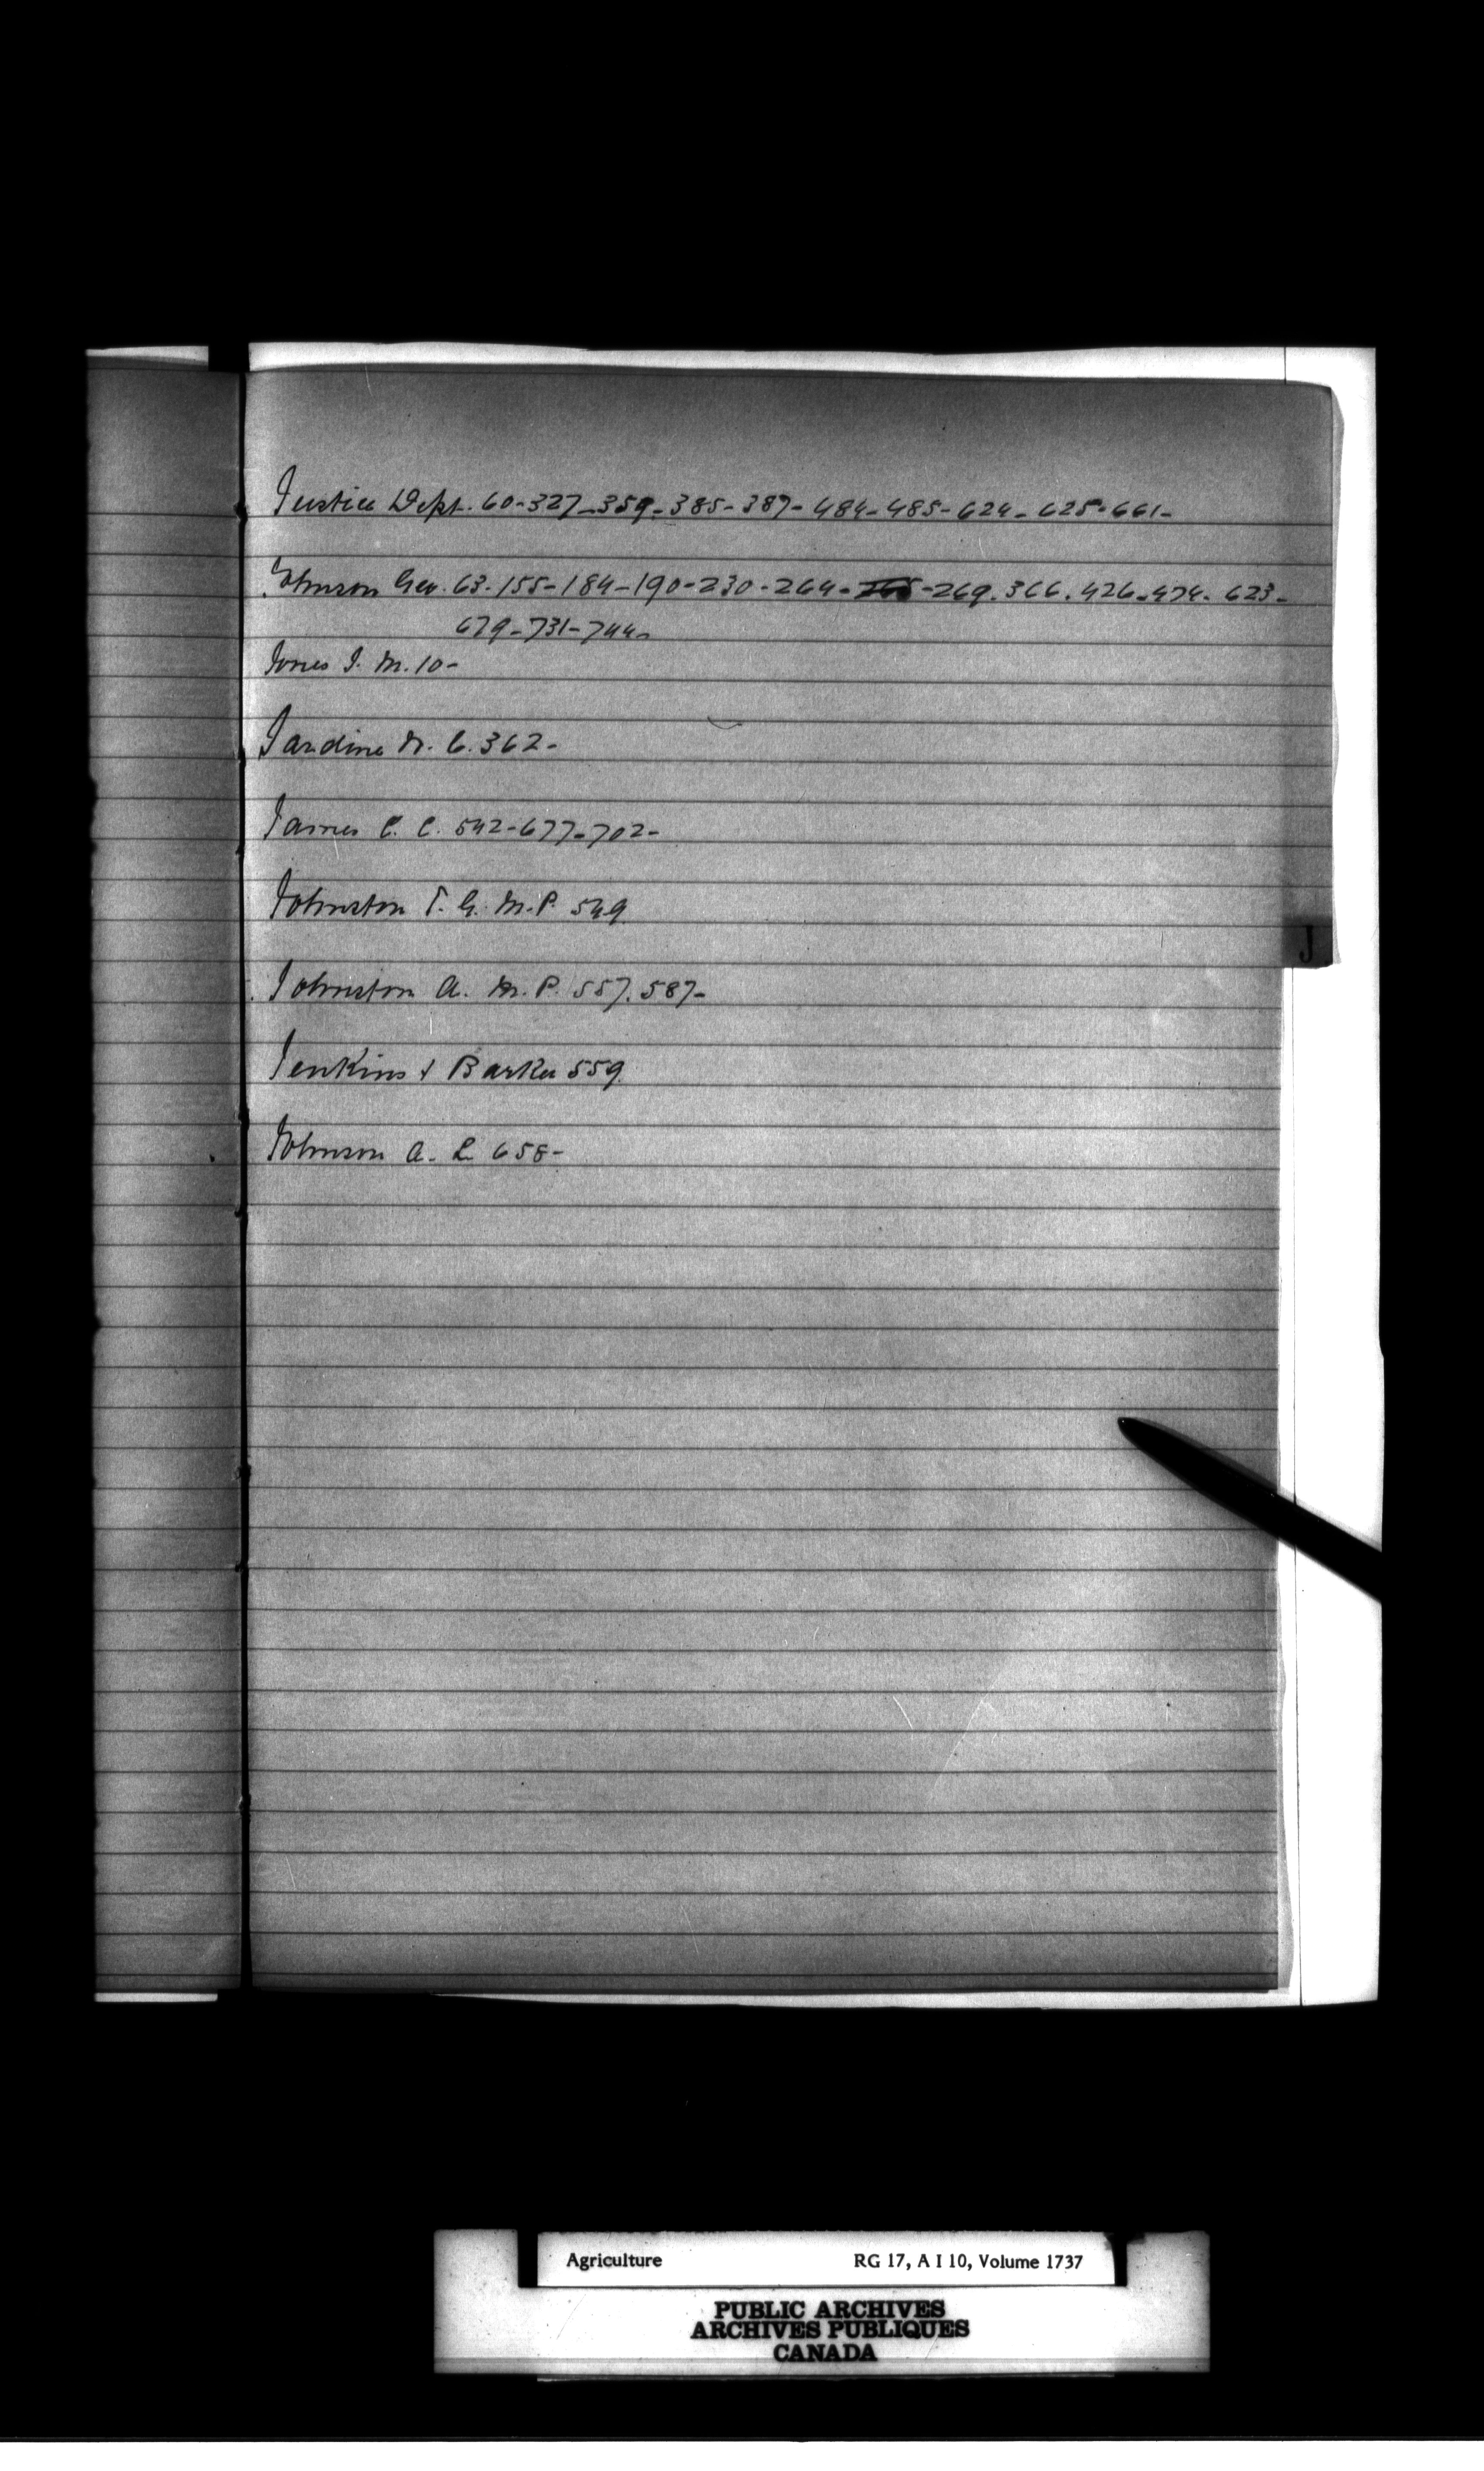 Justice Dept. 60-327-359-385-387-484-485-624-625-661-
Johnson Geo. 63-155-184-190-230-264-265-269.366.426-474-623-
679-731-744-
Jones J. M. 10-
Jardine N. C. 362-
James C. C. 542-677-702-
Johnston T. G. M.P. 549
Johnston A. M.P. 557.587-
J
Jenkins & Barker 559
Johnson A. L 658-
Agriculture RG 17, A I 10, Volume 1737
PUBLIC ARCHIVES
ARCHIVES PUBLIQUES
CANADA